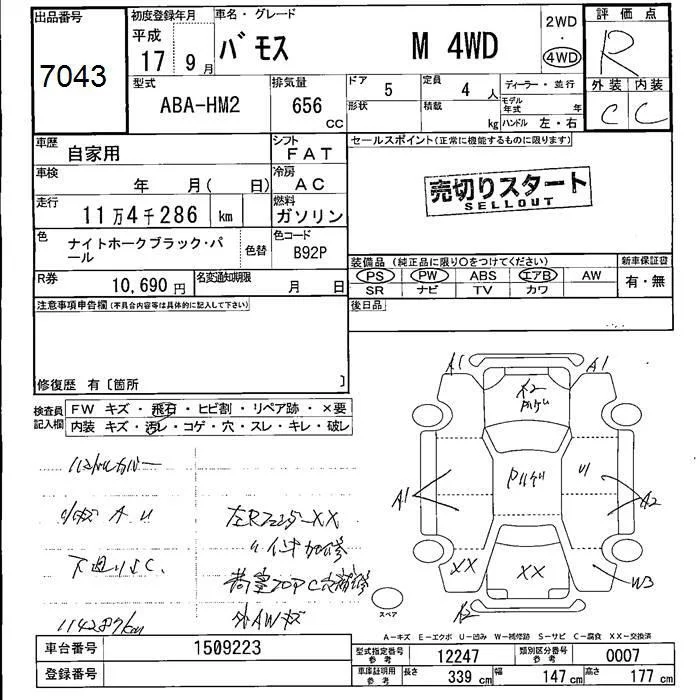 出品番号
7043
初度登録年月
平成
17 9月
車名・グレード
バモス M 4WD
2WD
・
4WD
評価点
R
外装 内装
C C
型式
ABA-HM2
排気量
656
CC
ドア
5
定員
4 人
形状
積載
kg
ディーラー・並行
モデル年式 年
ハンドル 左・右
車歴
自家用
シフト
FAT
車検
年 月( 日)
冷房
AC
走行
11万4千286 km
燃料
ガソリン
色
ナイトホークブラック・パール
色替
色コード
B92P
R券
10,690円
名変通知期限
月 日
セールスポイント(正常に機能するものに限ります)
売切りスタート
SELLOUT
装備品(純正品に限り○をつけてください)
PS PW ABS エアB AW
SR ナビ TV カワ
新車保証書
有・無
後日品
注意事項申告欄(不具合内容等は具体的に記入して下さい)
修復歴 有〔箇所 〕
検査員記入欄
FW キズ・飛石・ヒビ割・リペア跡・×要
内装 キズ・汚レ・コゲ・穴・スレ・キレ・破レ
ハンドルカバー
A U
下廻りS C.
114287km
左Rフェンダー XX
〃インナー
外AW
A1
A1
A2
A1
A2
U1
XX
XX
W3
スペア
A-キズ E-エクボ U-凹み W-補修跡 S-サビ C-腐食 XX-交換済
車台番号
1509223
登録番号
型式指定番号
参考
12247
類別区分番号
参考
0007
車庫証明用
参考
長さ 339 cm
幅 147 cm
高さ 177 cm